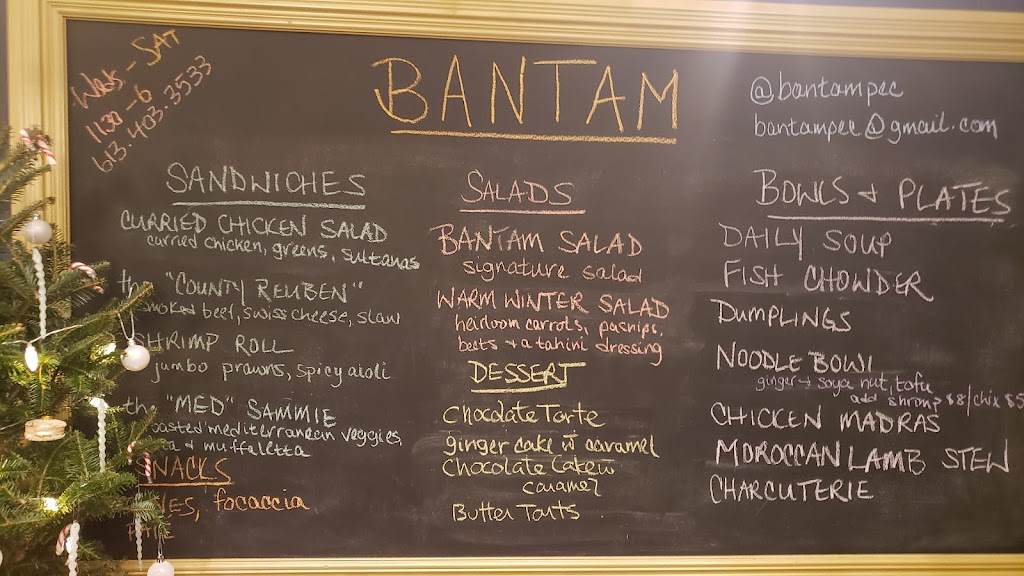 Weds - SAT
1130 - 6
613.403.3533
BANTAM
@bantampec
bantampec@gmail.com
SANDWICHES
CURRIED CHICKEN SALAD
curried chicken, greens, sultanas
the "COUNTY REUBEN"
smoked beef, swiss cheese, slaw
SHRIMP ROLL
jumbo prawns, spicy aioli
the "MED" SAMMIE
roasted mediterranean veggies,
& muffaletta
SNACKS
focaccia
SALADS
BANTAM SALAD
signature salad
WARM WINTER SALAD
heirloom carrots, parnips,
beets & a tahini dressing
DESSERT
Chocolate Torte
ginger cake w caramel
Chocolate Cake w
caramel
Butter Tarts
BOWLS & PLATES
DAILY SOUP
FISH CHOWDER
DUMPLINGS
NOODLE BOWL
ginger + soya nut, tofu
add shrimp $8/chix $5
CHICKEN MADRAS
MOROCCAN LAMB STEW
CHARCUTERIE